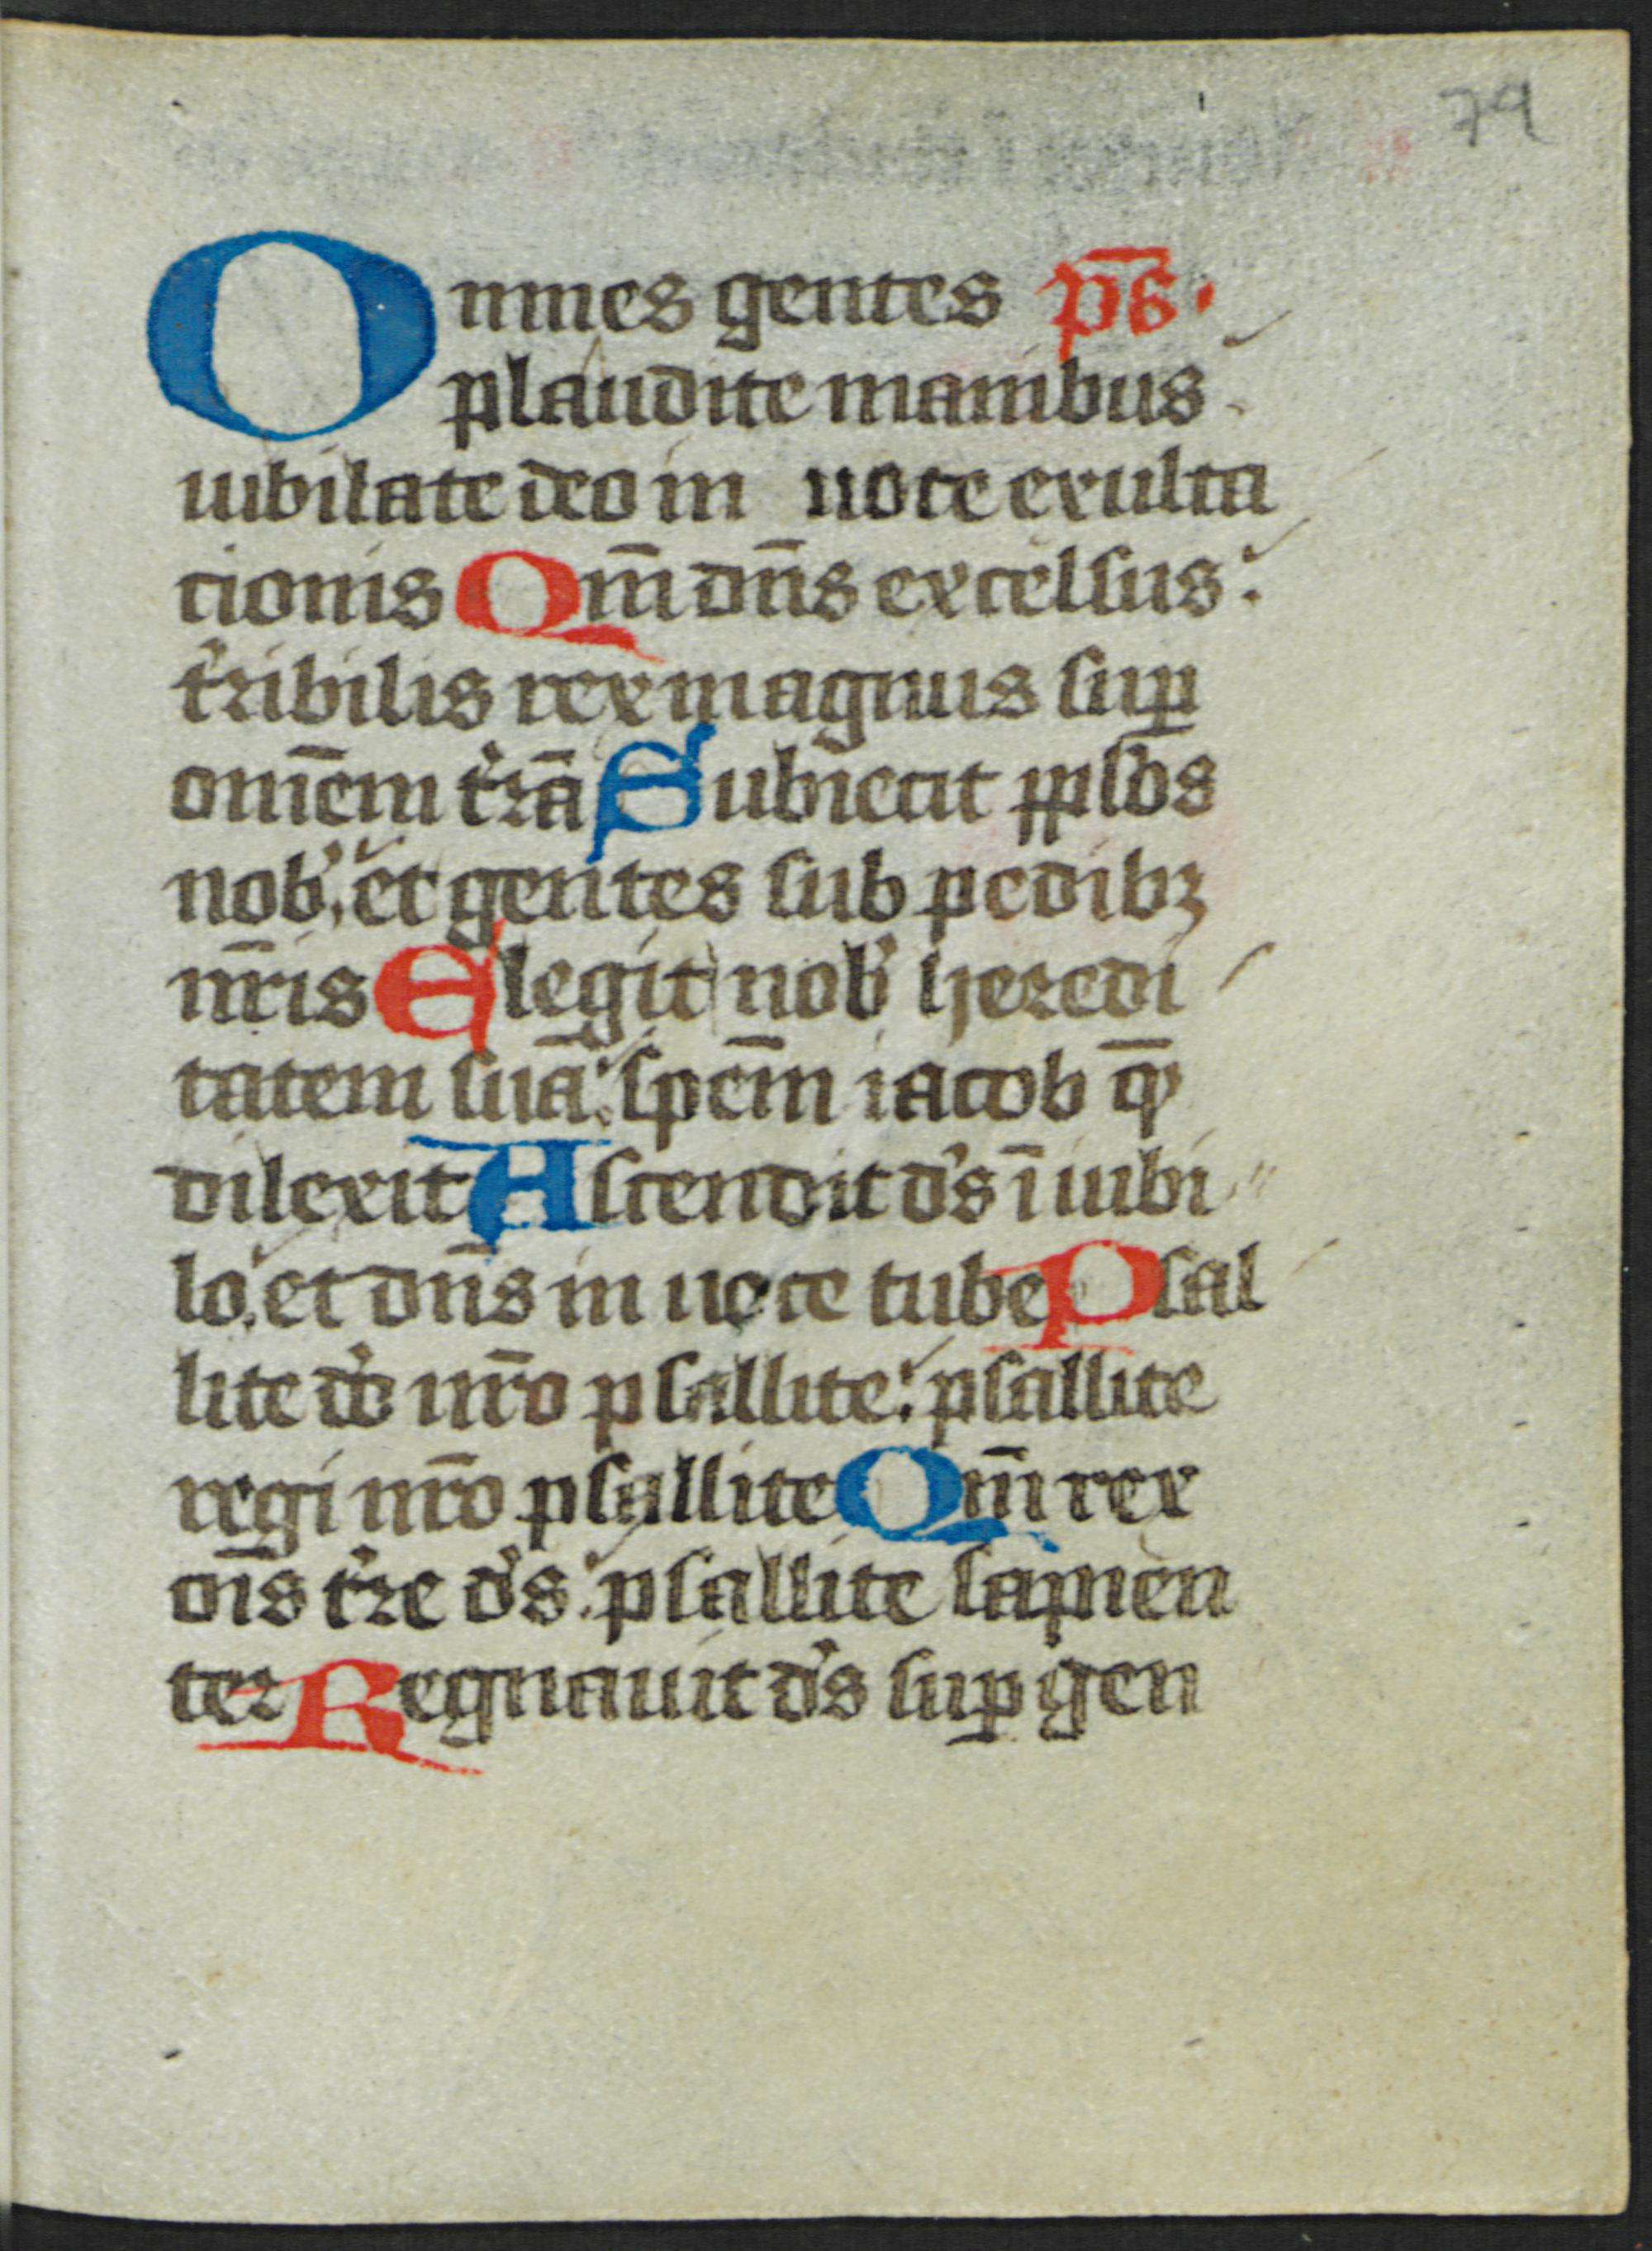 79
Omnes gentes p̄s.
plaudite manibus
iubilate deo in uoce exulta
cionis Qm̄ dn̄s excelsus:
t͛ribilis rex magnus suꝑ
om̄em t͛rā Subiecit pplos
nob᾽. et gentes sub pedibꝫ
nr̄is Elegit nob᾽ heredi
tatem suā: spēm iacob q̄
dilexit Ascendit d᾽s ī iubi
lo. et dn̄s in uoce tube Psal
lite do nr̄o psallite: psallite
regi nr̄o psallite Qm̄ rex
om̄s t͛re d᾽s: psallite sapien
ter Regnauit d᾽s suꝑ gen